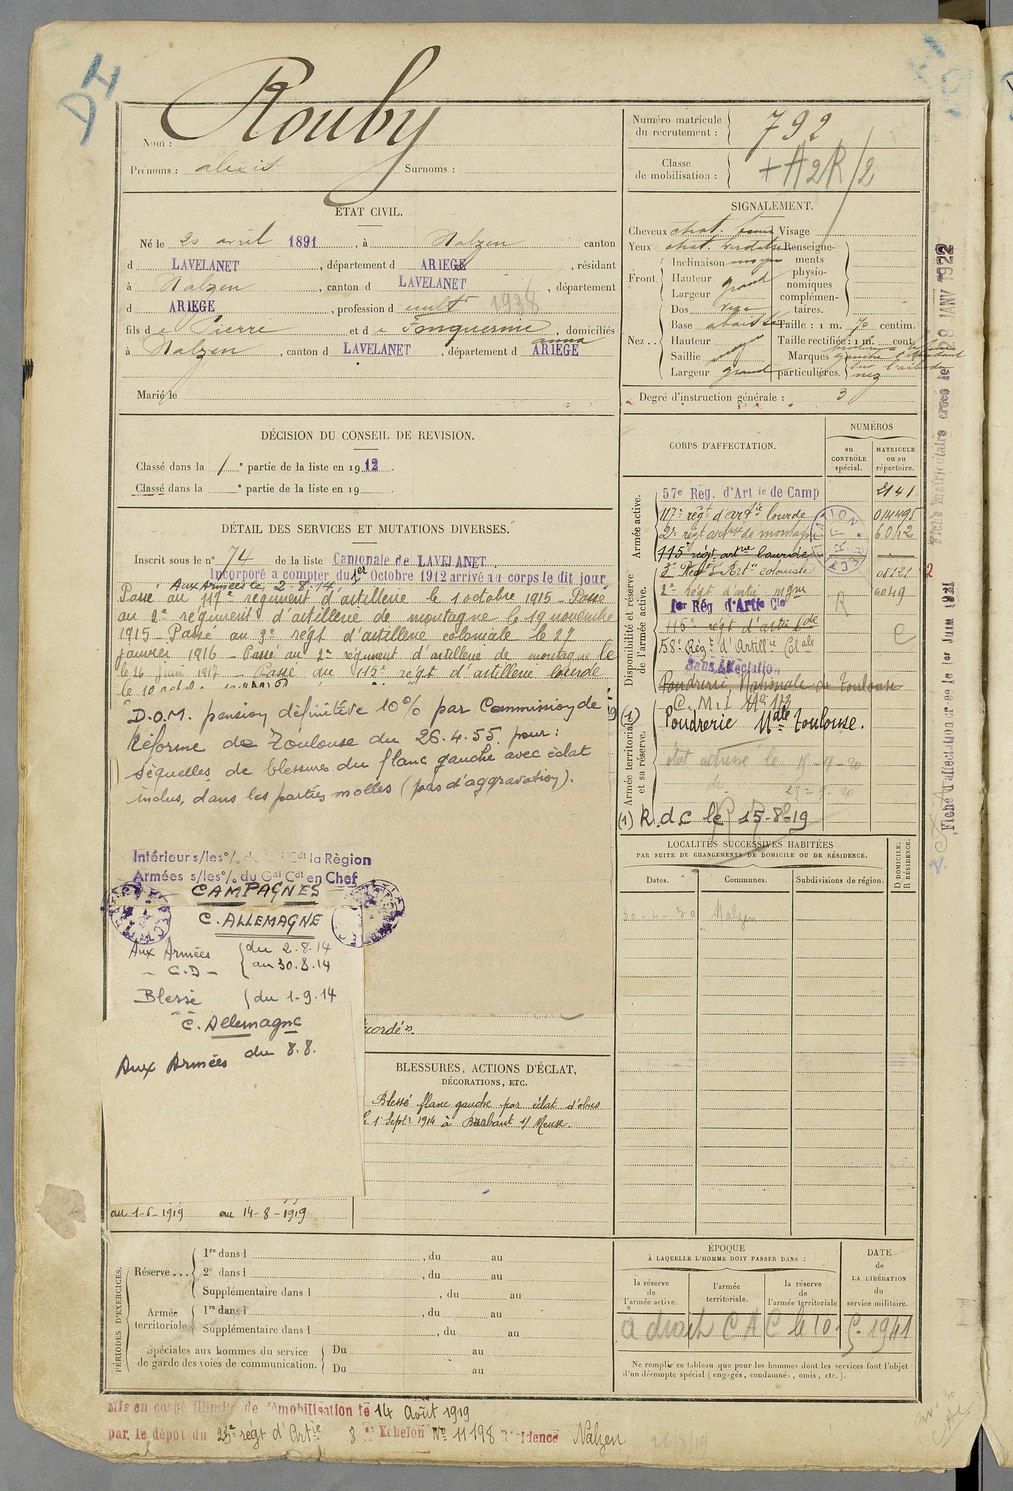 D4
Nom : Rouby
Prénoms : alexis Surnoms :
Numéro matricule du recrutement : 792
Classe de mobilisation : + A2R/2
ÉTAT CIVIL.
Né le 20 avril 1891, à Nalzen canton
d LAVELANET, département d ARIEGE, résidant
à Nalzen, canton d LAVELANET, département
d ARIEGE, profession d cultr 1938
fils de Pierre et de Fonquernie anna, domiciliés
à Nalzen, canton d LAVELANET, département d ARIEGE
Marié le
SIGNALEMENT.
Cheveux chat. foncé Visage
Yeux chat. verdatre Renseignements physionomiques complémentaires.
Front. Inclinaison moyen
Hauteur grand
Largeur
Nez.. Dos
Base abaissée Taille : 1 m. 70 centim.
Hauteur Taille rectifiée : 1 m. cent.
Saillie moyen Marques
Largeur grand particulières.
nez
Degré d'instruction générale : 3
DÉCISION DU CONSEIL DE REVISION.
Classé dans la 1e partie de la liste en 1912.
Classé dans la e partie de la liste en 19
DÉTAIL DES SERVICES ET MUTATIONS DIVERSES.
Inscrit sous le n° 74 de la liste Cantonale de LAVELANET
Incorporé à compter du 1er Octobre 1912 arrivé au corps le dit jour
Aux Armées le 2-8-14
Passé au 117e régiment d'artillerie le 1 octobre 1915 - Passé
au 2e régiment d'artillerie de montagne le 19 novembre
1915 - Passé au 3e régt d'artillerie coloniale le 22
janvier 1916 - Passé au 2e régiment d'artillerie de montagne le
le 26 juin 1917 - Passé au 115e régt d'artillerie lourde
D.O.M. pension définitive 10% par Commission de
Réforme de Toulouse du 26.4.55 pour :
séquelles de blessures du flanc gauche avec éclat
inclus, dans les parties molles (pas d'aggravation).
Intérieur s/les % du Gal Cdt la Région
Armées s/les % du Gal Cdt en Chef
CAMPAGNES
C. ALLEMAGNE
Aux Armées du 2-8-14
- C.D - au 30.8.14
Blessé du 1-9-14
C. Allemagne
Aux Armées du 8.8.
au 1-6-1919 au 14-8-1919
BLESSURES, ACTIONS D'ÉCLAT,
DÉCORATIONS, ETC.
Blessé flanc gauche par éclat d'obus
le 1 Septe 1914 à Brabant s/ Meuse.
CORPS D'AFFECTATION.
NUMÉROS
au CONTRÔLE spécial.
MATRICULE ou au répertoire.
Armée active.
57e Reg. d'Artie de Camp 2141
117e régt d'artie lourde 014495
2e régt artie de montagne 6042
115e régt artie lourde
Disponibilité et réserve de l'armée active.
3e Régt d'Artie coloniale
2e régt d'artie mgne
1er Rég d'Artie Cle
115e régt d'artie lde
58e Régt d'Artillie Cale
Sans affectation
Poudrerie Nationale de Toulouse
Armée territoriale et sa réserve.
Poudrerie Nale Toulouse.
état adressé le 15-9-20
(1) R.d.C le 15-8-19
LOCALITÉS SUCCESSIVES HABITÉES
PAR SUITE DE CHANGEMENTS DE DOMICILE OU DE RÉSIDENCE.
Dates. Communes. Subdivisions de région. D DOMICILE. R RÉSIDENCE.
Nalzen
PÉRIODES D'EXERCICES.
Réserve... 1re dans l , du au
2e dans l , du au
Supplémentaire dans l , du au
Armée territoriale 1re dans l , du au
Supplémentaire dans l , du au
Spéciales aux hommes du service Du au
de garde des voies de communication. Du au
ÉPOQUE
À LAQUELLE L'HOMME DOIT PASSER DANS :
la réserve de l'armée active.
l'armée territoriale.
la réserve de l'armée territoriale
DATE de LA LIBÉRATION du service militaire.
a droit C A C le 10 1941
Ne remplir ce tableau que pour les hommes dont les services font l'objet
d'un décompte spécial (engagés, condamnés, omis, etc.).
Mis en congé illimité de démobilisation le 14 Août 1919
par le dépôt du régt d'Artie 8 e Echelon No 11198 Résidence Nalzen
Fiche matriculaire créée le 28 JANV 1922
Fiche d'affectation créée le 1er Juin 1921